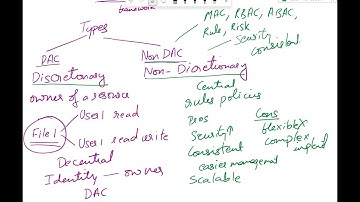 framework
Types
MAC, RBAC, ABAC,
Rule, Risk
Security
consistent
DAC
Discretionary
owner of a resource
File 1
User1 read
User1 read write
Decentral
Identity — owner
DAC
Non DAC
Non-Discretionary
Central
rules policies
Pros
Security↑
Consistent
easier management
Scalable
Cons
flexible X
complex